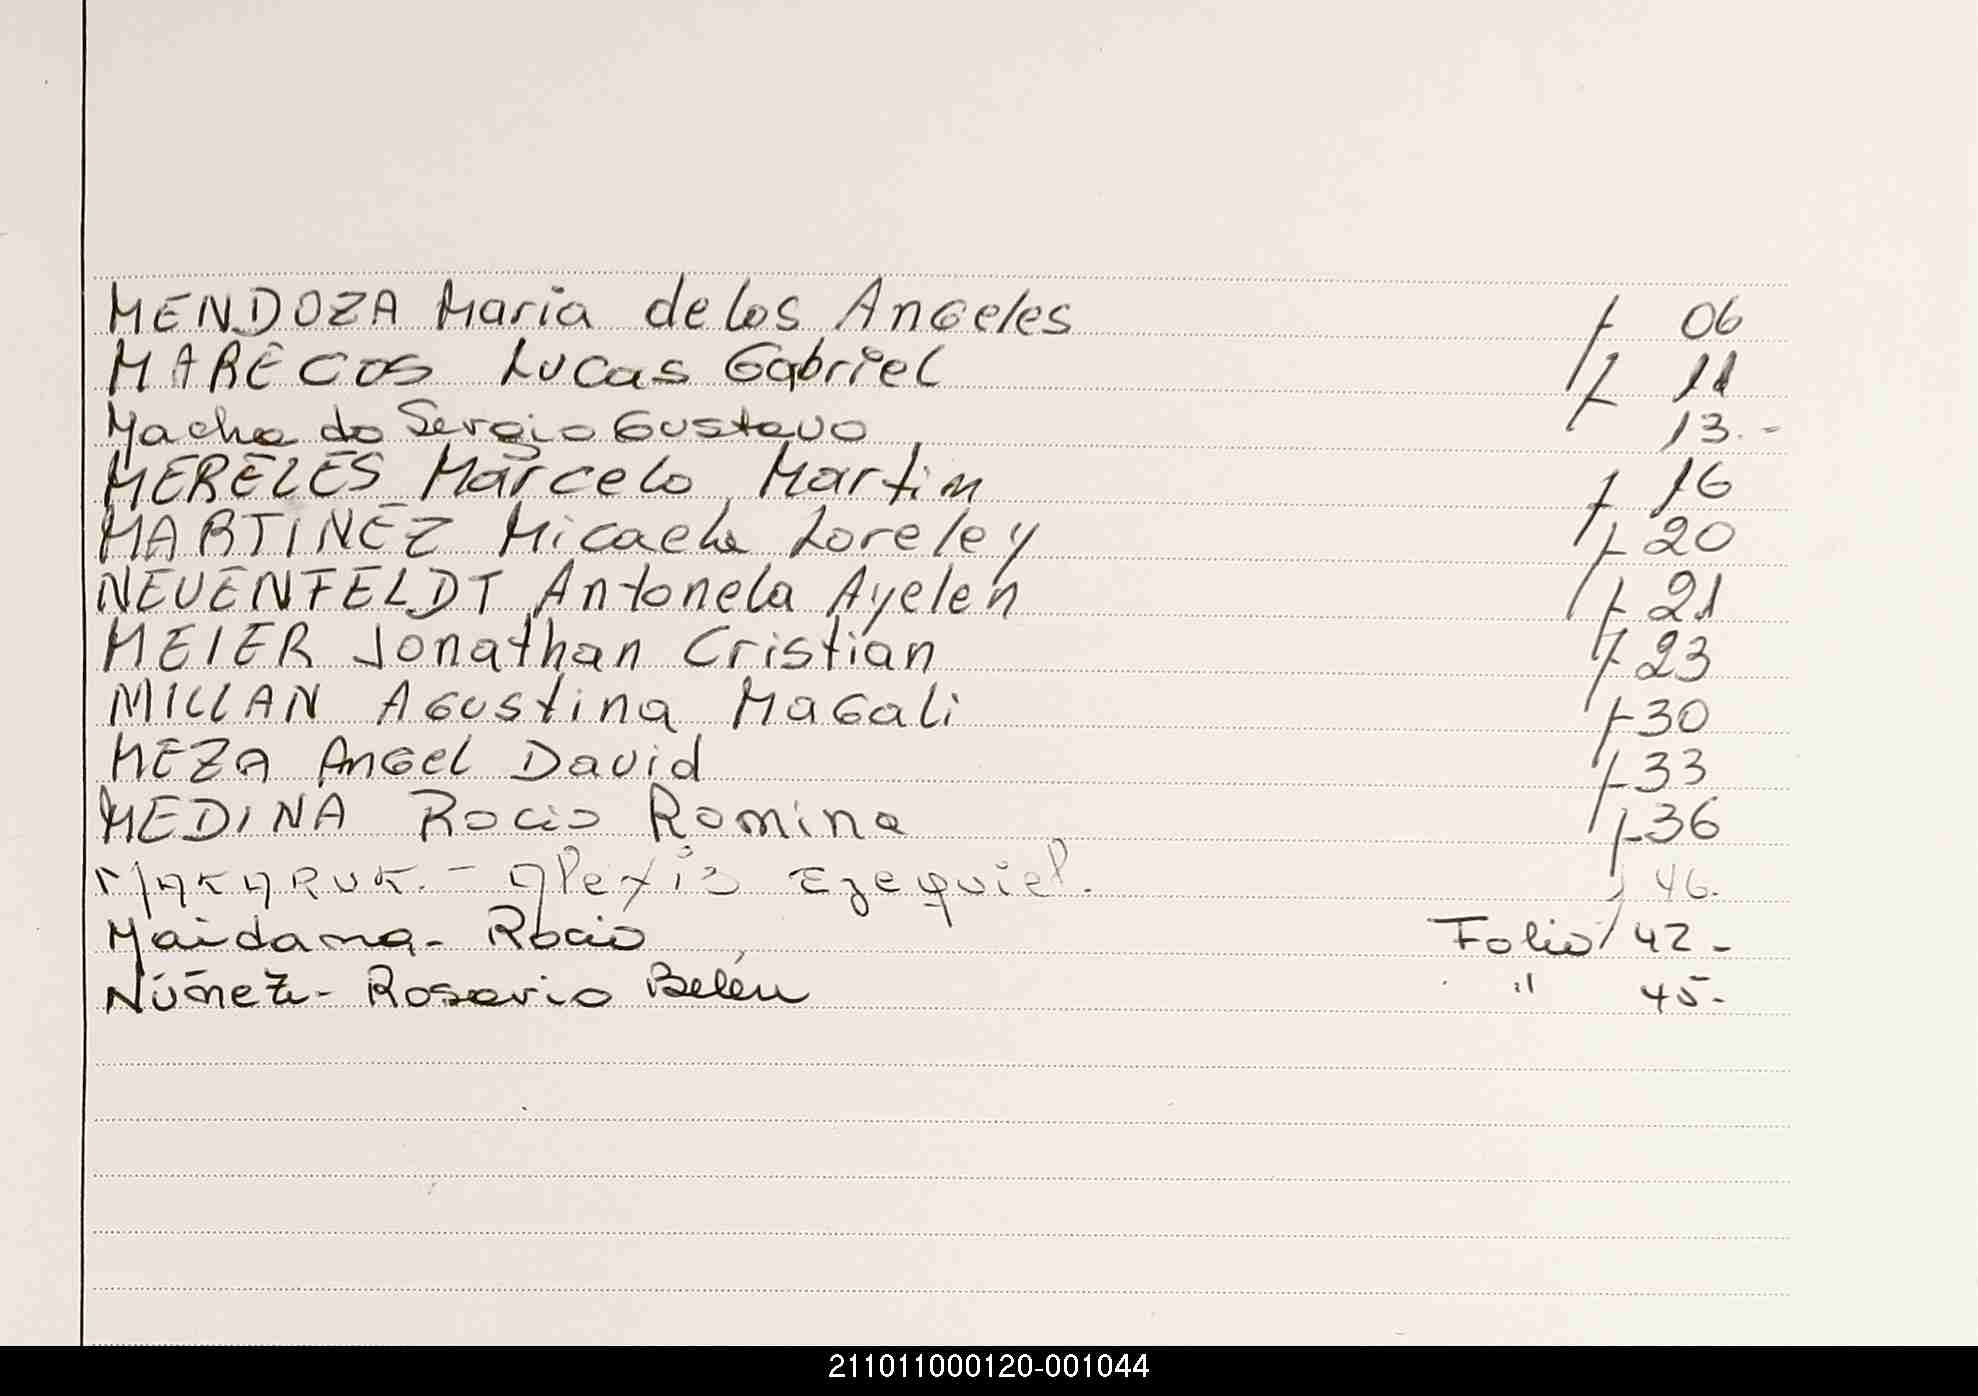 MENDOZA Maria de los Angeles f 06
MARECOS Lucas Gabriel f 11
Machado Sergio Gustavo 13.-
MERELES Marcelo Martin f 16
MARTINEZ Micaela Loreley f 20
NEUENFELDT Antonela Ayelen f 21
MEIER Jonathan Cristian f 23
MILLAN Agustina Magali f 30
MEZA Angel David f 33
MEDINA Rocio Romina f 36
MAKARUK.- Alexis Ezequiel. 46.
Maidana- Rocio Folio/ 42-
Núñez- Rosario Belén " 45-
211011000120-001044